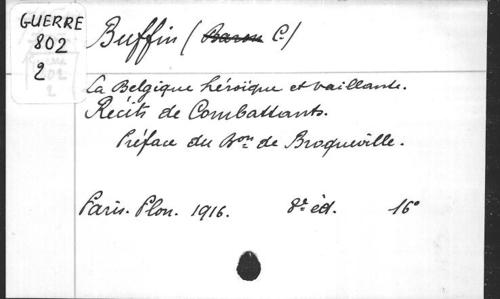 GUERRE
802
2
Buffin (Baron C.)
La Belgique héroïque et vaillante.
Récits de Combattants.
Préface du Bon de Broqueville.
Paris. Plon. 1916. 8e éd. 16°